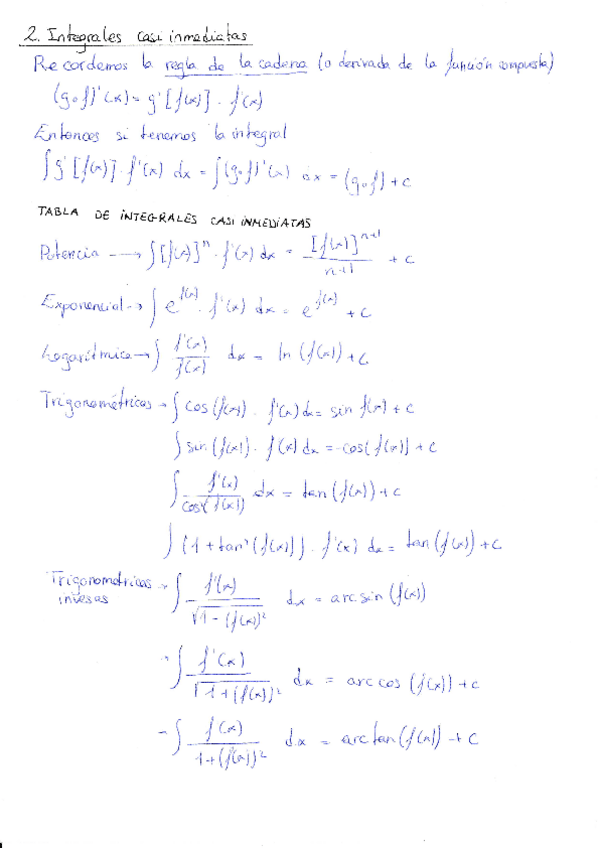 2. Integrales casi inmediatas
Recordemos la regla de la cadena (o derivada de la función compuesta)
(g∘f)'(x) = g'[f(x)] · f'(x)
Entonces si tenemos la integral
∫g'[f(x)] · f'(x) dx = ∫(g∘f)'(x) dx = (g∘f) + c
TABLA DE INTEGRALES CASI INMEDIATAS
Potencia → ∫[f(x)]^n · f'(x) dx = [f(x)]^(n+1) / (n+1) + c
Exponencial → ∫ e^(f(x)) · f'(x) dx = e^(f(x)) + c
Logarítmica → ∫ f'(x) / f(x) dx = ln (f(x)) + c
Trigonométricas → ∫ cos (f(x)) · f'(x) dx = sin f(x) + c
∫ sin (f(x)) · f(x) dx = -cos(f(x)) + c
∫ f'(x) / cos²(f(x)) dx = tan (f(x)) + c
∫ (1 + tan² (f(x))) · f'(x) dx = tan (f(x)) + c
Trigonometricas invesas → ∫ f'(x) / √(1 - (f(x))²) dx = arcsin (f(x))
- ∫ f'(x) / √(1 + (f(x))²) dx = arccos (f(x)) + c
- ∫ f(x) / (1 + (f(x))²) dx = arctan (f(x)) + c